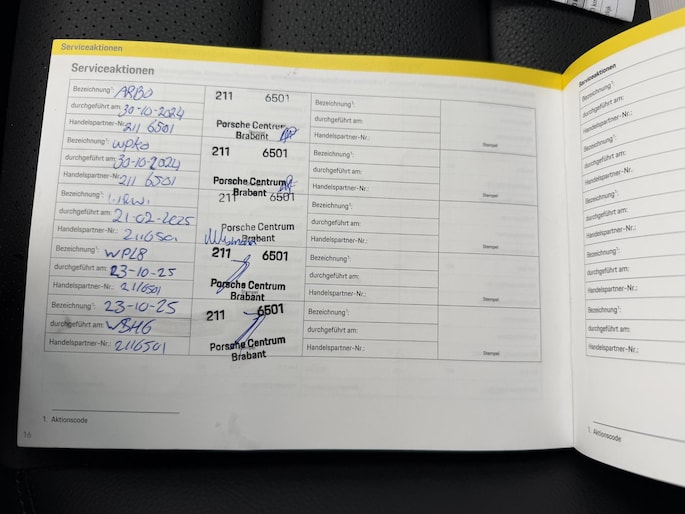 Serviceaktionen
Serviceaktionen
Bezeichnung¹: ARBO
durchgeführt am: 30-10-2024
Handelspartner-Nr.: 211 6501
211 6501
Porsche Centrum
Brabant
Bezeichnung¹: wpka
durchgeführt am: 30-10-2024
Handelspartner-Nr.: 211 6501
211 6501
Porsche Centrum
Brabant
Bezeichnung¹:
durchgeführt am: 21-02-2025
Handelspartner-Nr.: 2116501
211 6501
Porsche Centrum
Brabant
Bezeichnung¹: WPL8
durchgeführt am: 23-10-25
Handelspartner-Nr.: 2116501
211 6501
Porsche Centrum
Brabant
Bezeichnung¹: 23-10-25
durchgeführt am: WSH6
Handelspartner-Nr.: 2116501
211 6501
Porsche Centrum
Brabant
Bezeichnung¹:
durchgeführt am:
Handelspartner-Nr.:
Stempel
Bezeichnung¹:
durchgeführt am:
Handelspartner-Nr.:
Stempel
Bezeichnung¹:
durchgeführt am:
Handelspartner-Nr.:
Stempel
Bezeichnung¹:
durchgeführt am:
Handelspartner-Nr.:
Stempel
Bezeichnung¹:
durchgeführt am:
Handelspartner-Nr.:
Stempel
1. Aktionscode
16
Serviceaktionen
Serviceaktionen
Bezeichnung¹:
durchgeführt am:
Handelspartner-Nr.:
Bezeichnung¹:
durchgeführt am:
Handelspartner-Nr.:
Bezeichnung¹:
durchgeführt am:
Handelspartner-Nr.:
Bezeichnung¹:
durchgeführt am:
Handelspartner-Nr.:
Bezeichnung¹:
durchgeführt am:
Handelspartner-Nr.:
1. Aktionscode